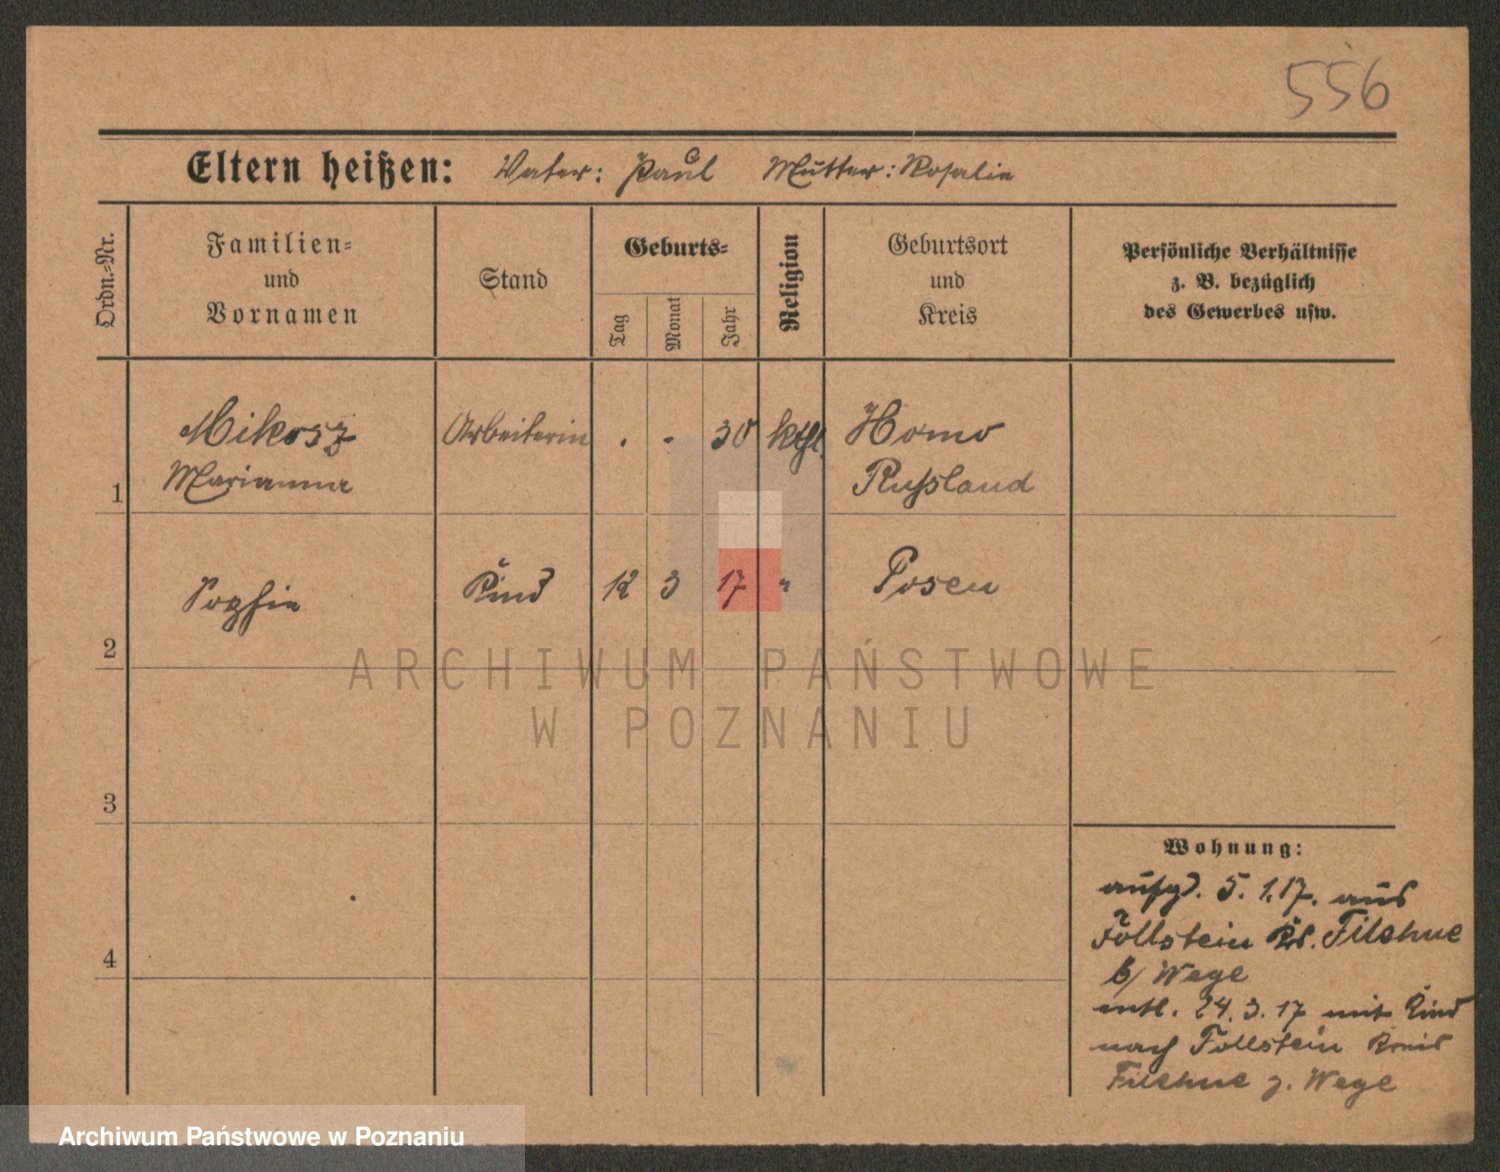 556
Eltern heißen: Vater: Paul Mutter: Rosalie
Ordn.=Nr.
Familien=
und
Vornamen
Stand
Geburts=
Tag
Monat
Jahr
Religion
Geburtsort
und
Kreis
Persönliche Verhältnisse
z. B. bezüglich
des Gewerbes usw.
Mikosz Arbeiterin . - 30 kthl. Homo
1 Marianna Russland
Sophie Kind 12 3 17 " Posen
2
ARCHIWUM PAŃSTWOWE
W POZNANIU
3
4
Wohnung:
5. 1.17. aus
Follstein Krs. Filehne
b/ Wege
entl. 24.3.17 mit Kind
nach Follstein Kreis
Filehne z. Wege
Archiwum Państwowe w Poznaniu